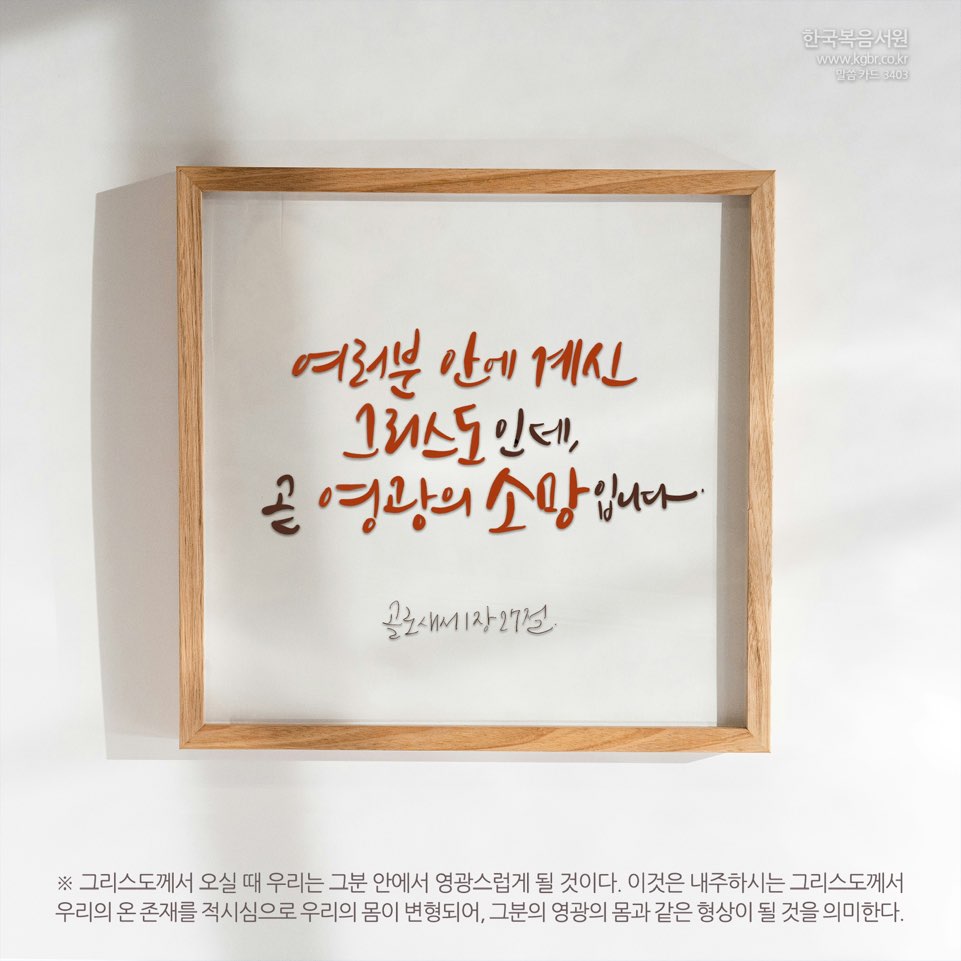 한국복음서원
www.kgbr.co.kr
말씀 카드 3403
여러분 안에 계신
그리스도인데,
곧 영광의 소망입니다.
골로새서 1장 27절.
※ 그리스도께서 오실 때 우리는 그분 안에서 영광스럽게 될 것이다. 이것은 내주하시는 그리스도께서
우리의 온 존재를 적시심으로 우리의 몸이 변형되어, 그분의 영광의 몸과 같은 형상이 될 것을 의미한다.